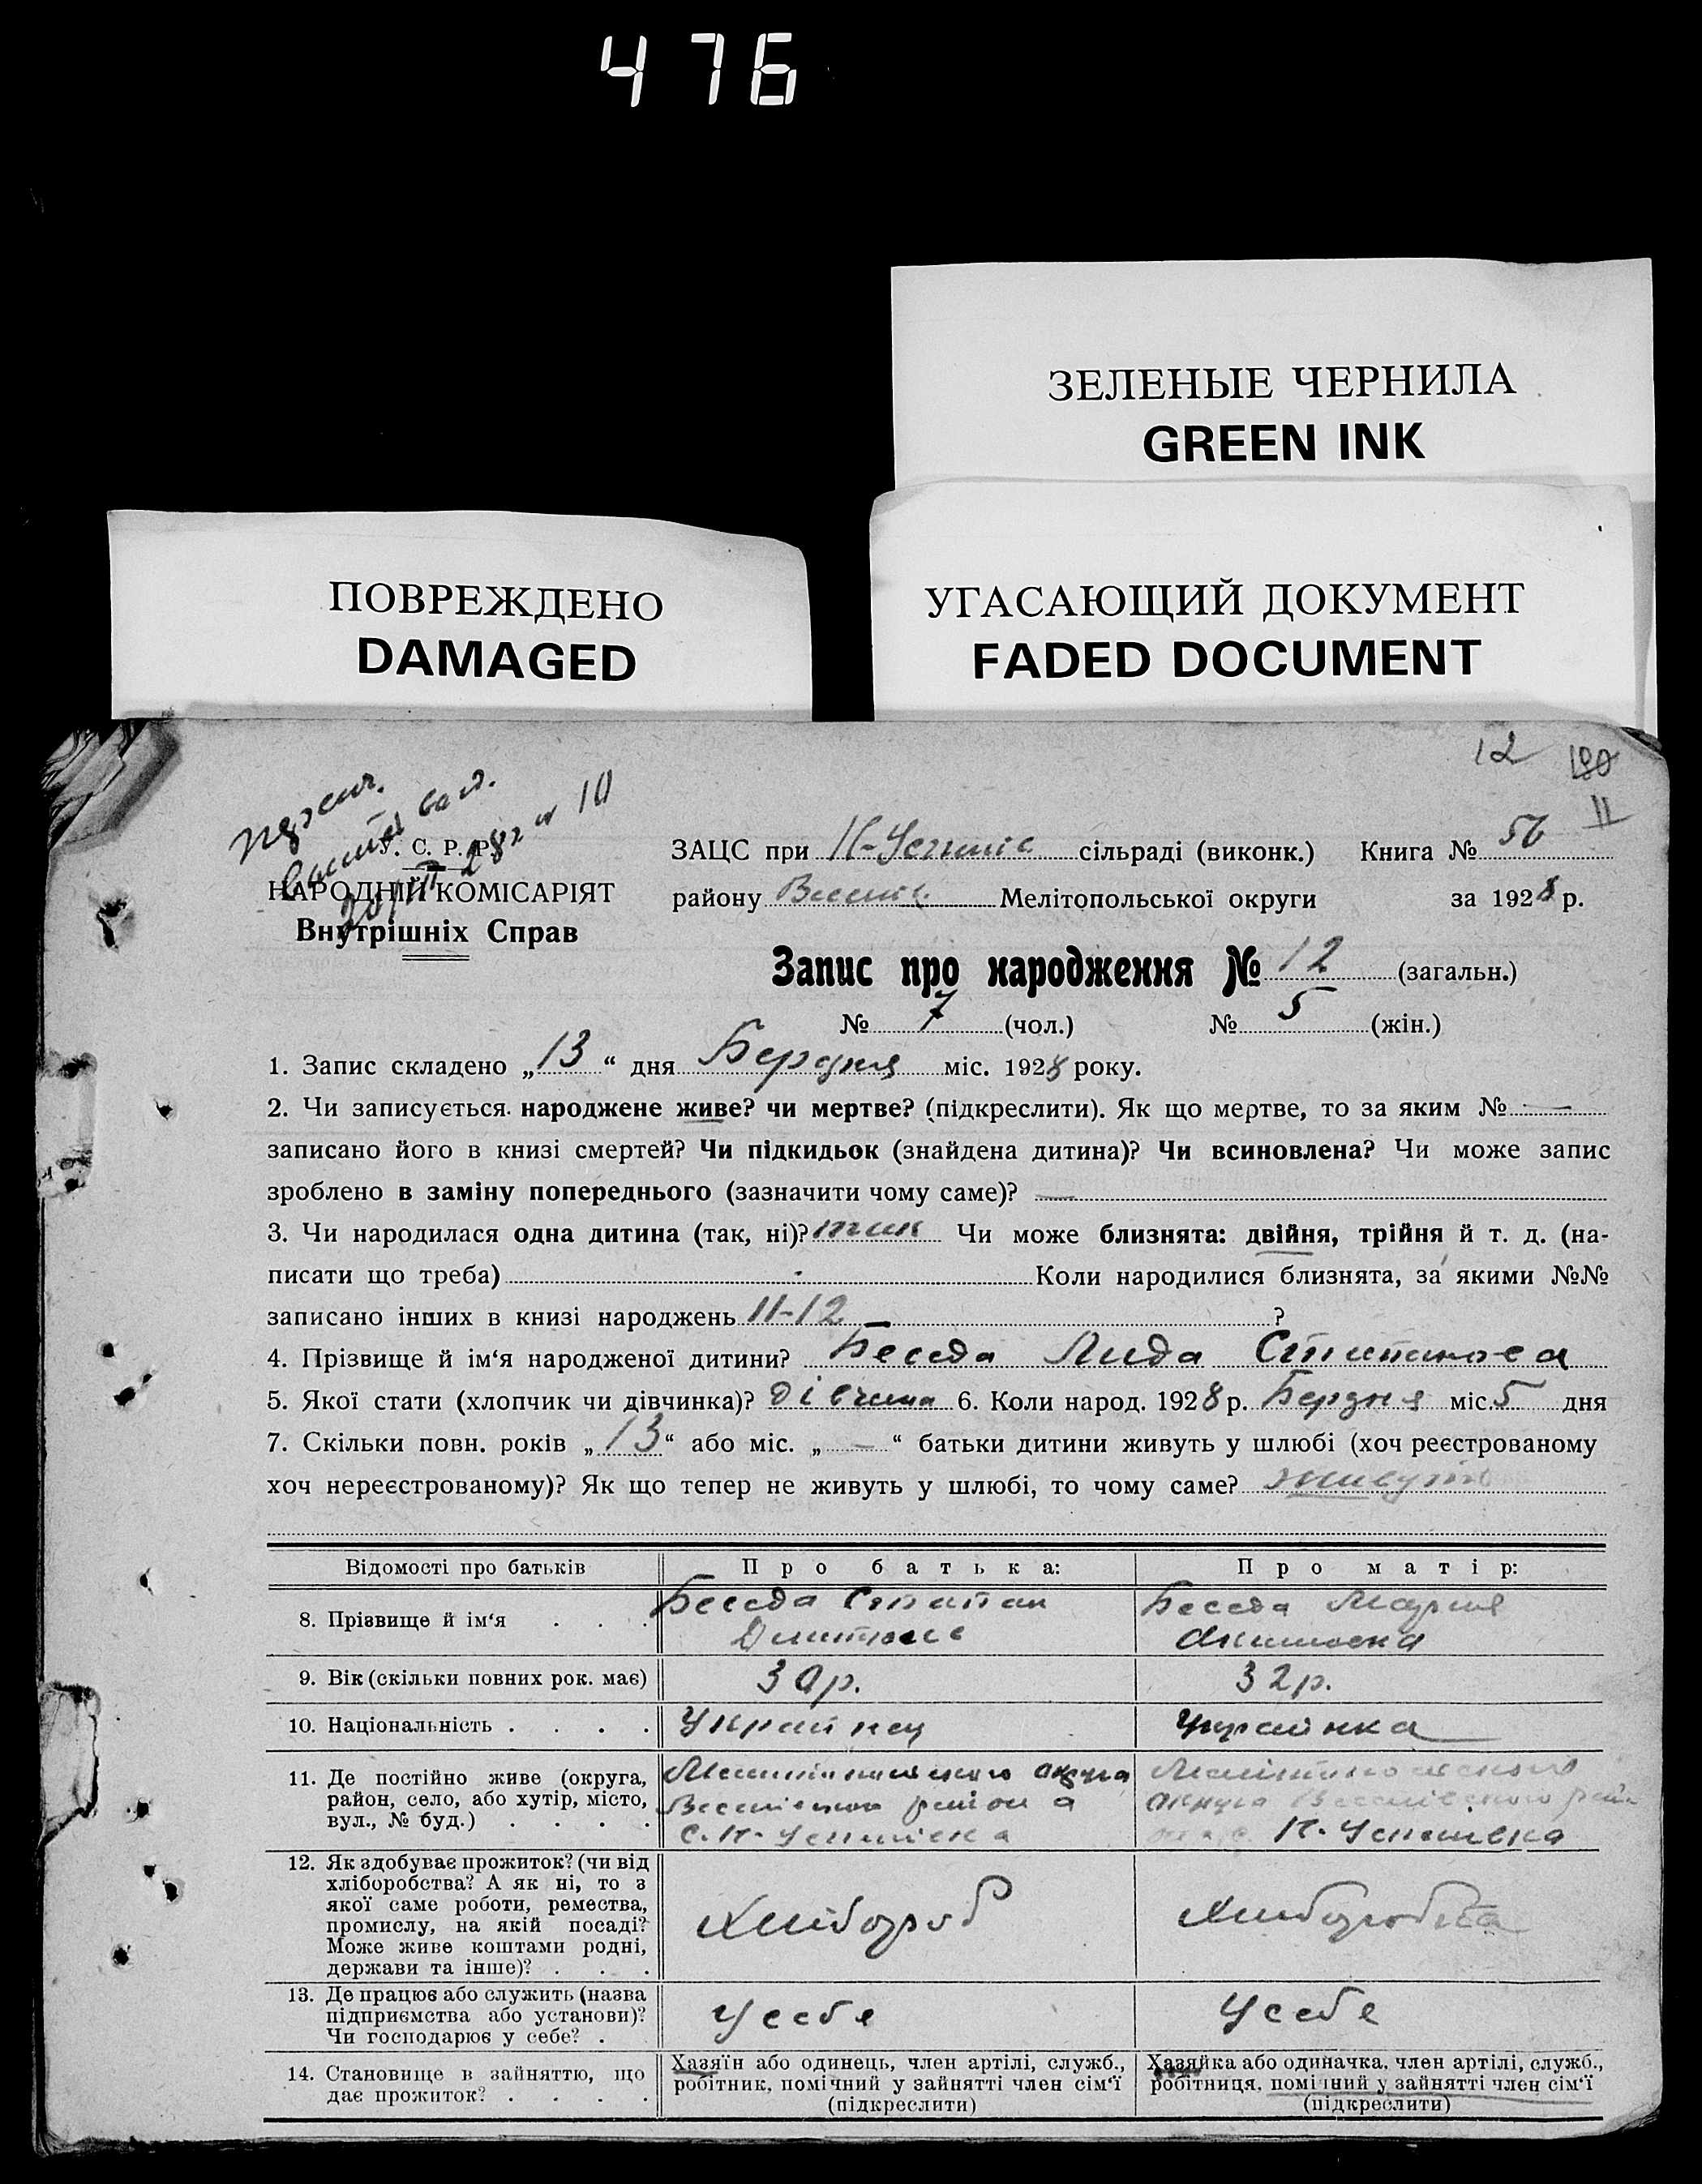 476
ЗЕЛЕНЫЕ ЧЕРНИЛА
GREEN INK
ПОВРЕЖДЕНО
DAMAGED
УГАСАЮЩИЙ ДОКУМЕНТ
FADED DOCUMENT
12 180
11
10
У. С. Р. Р.
НАРОДНІЙ КОМІСАРІЯТ
Внутрішніх Справ
ЗАЦС при сільраді (виконк.) Книга № 56
району Мелітопольської округи за 1928 р.
Запис про народження № 12 (загальн.)
№ 7 (чол.) № 5 (жін.)
1. Запис складено „13“ дня Бердня міс. 1928 року.
2. Чи записується народжене живе? чи мертве? (підкреслити). Як що мертве, то за яким № —
записано його в книзі смертей? Чи підкидьок (знайдена дитина)? Чи всиновлена? Чи може запис
зроблено в заміну попереднього (зазначити чому саме)? —
3. Чи народилася одна дитина (так, ні)? так Чи може близнята: двійня, трійня й т. д. (на-
писати що треба) Коли народилися близнята, за якими №№
записано інших в книзі народжень 11-12 ?
4. Прізвище й ім‘я народженої дитини? Беседа Лида
5. Якої стати (хлопчик чи дівчинка)? дівчина 6. Коли народ. 1928 р. Бердня міс. 5 дня
7. Скільки повн. років „13“ або міс. „—“ батьки дитини живуть у шлюбі (хоч реєстрованому
хоч нереєстрованому)? Як що тепер не живуть у шлюбі, то чому саме? живуть
Відомості про батьків Про батька: Про матір:
8. Прізвище й ім‘я Беседа Степан Беседа Мария
9. Вік (скільки повних рок. має) р. 32 р.
10. Національність Українец Українка
11. Де постійно живе (округа,
район, село, або хутір, місто,
вул., № буд.)
12. Як здобуває прожиток? (чи від
хліборобства? А як ні, то з
якої саме роботи, ремества,
промислу, на якій посаді?
Може живе коштами родні,
держави та інше)? Хлібороб Хлиборобка
13. Де працює або служить (назва
підприємства або установи)?
Чи господарює у себе? У себе У себе
14. Становище в зайняттю, що
дає прожиток?
Хазяїн або одинець, член артілі, служб.,
робітник, помічний у зайнятті член сім‘ї
(підкреслити)
Хазяйка або одиначка, член артілі, служб.,
робітниця, помічний у зайнятті член сім‘ї
(підкреслити)